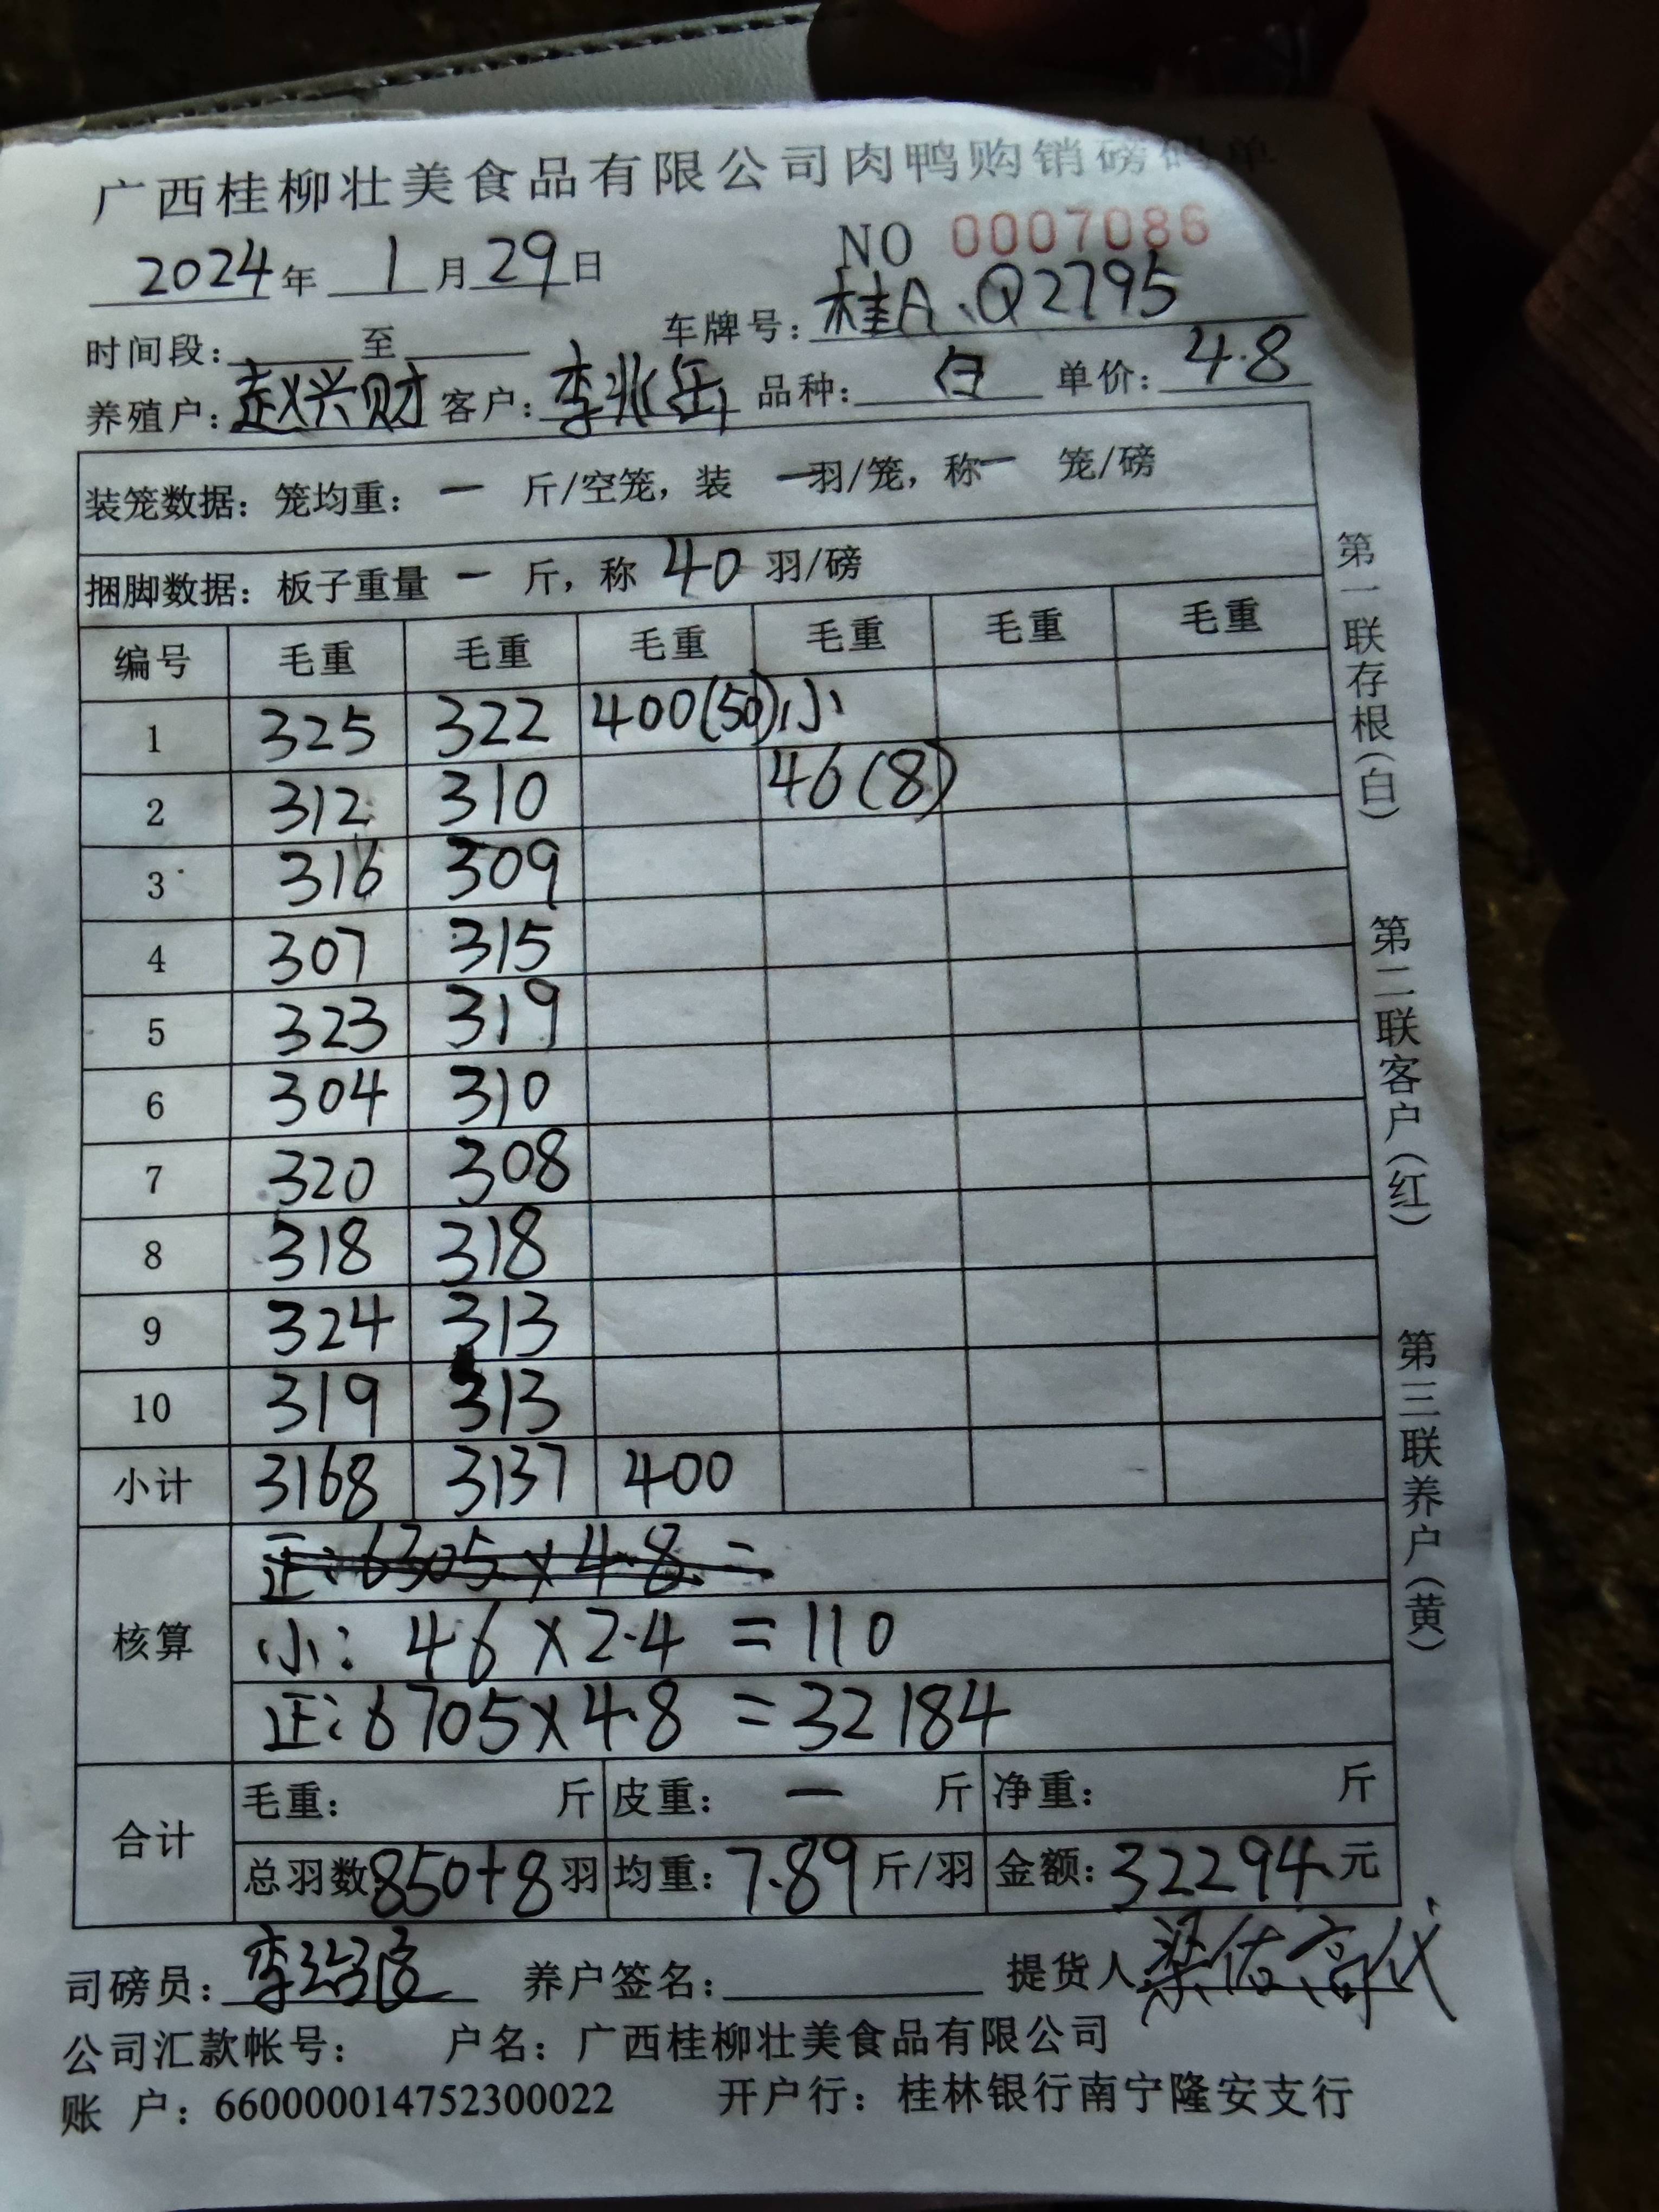 广西桂柳壮美食品有限公司肉鸭购销磅码单
2024年 1月29日 NO 0007086
时间段: 至 车牌号: 桂A、Q2795
养殖户: 赵兴财 客户: 李兆岳 品种: 白 单价: 4.8
装笼数据: 笼均重: 一 斤/空笼, 装 一羽/笼, 称一 笼/磅
捆脚数据: 板子重量 一 斤, 称 40 羽/磅
编号 毛重 毛重 毛重 毛重 毛重 毛重
1 325 322 400(50) 小
2 312 310 46(8)
3 316 309
4 307 315
5 323 319
6 304 310
7 320 308
8 318 318
9 324 313
10 319 313
小计 3168 3137 400
正: 6305×4.8 =
核算 小: 46×2.4 =110
正: 6705×4.8 =32184
合计 毛重: 斤 皮重: 一 斤 净重: 斤
总羽数850+8羽 均重: 7.89斤/羽 金额: 32294元
司磅员: 养户签名: 提货人
公司汇款帐号: 户名: 广西桂柳壮美食品有限公司
账 户: 660000014752300022 开户行: 桂林银行南宁隆安支行
第一联存根(白) 第二联客户(红) 第三联养户(黄)